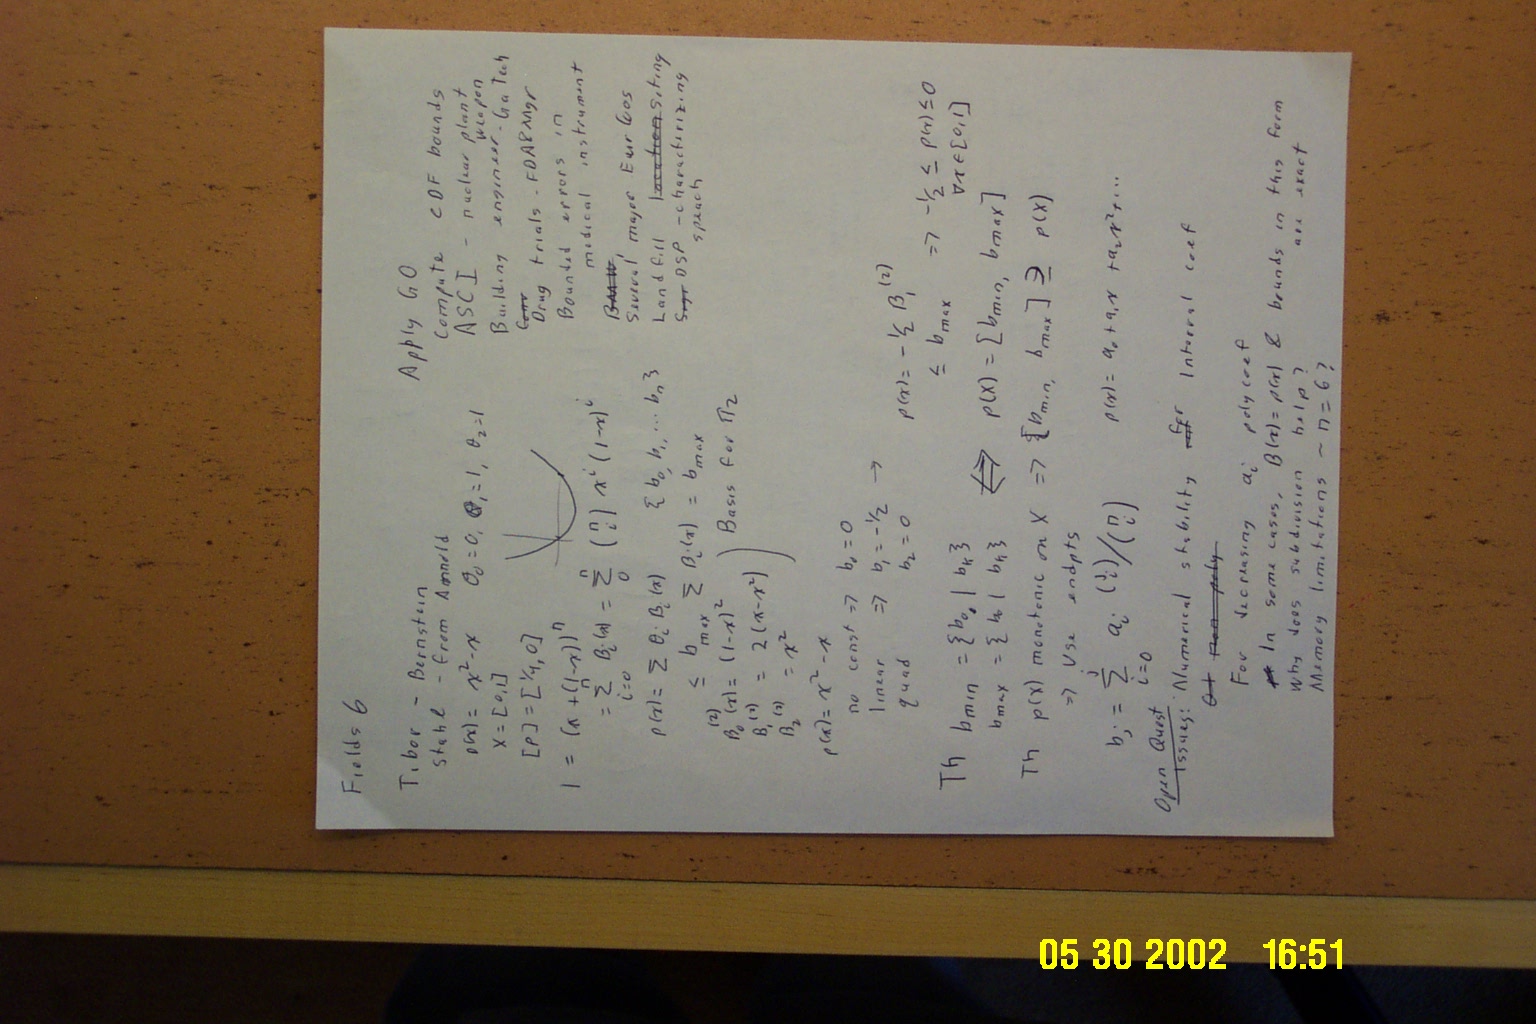 Fields 6
Tibor - Bernstein
stable - from Arnold
p(x) = x² - x   θ₀ = 0, θ₁ = 1, θ₂ = 1
X = [0,1]
[P] = [¼, 0]
1 = (x + (1-x))ⁿ
= Σ_{i=0}^{n} Bᵢ(x) = Σ_{0}^{n} (n i) xⁱ (1-x)ⁱ
p(x) = Σ θᵢ Bᵢ(x)   {b₀, b₁, ... bₙ}
≤ b max Σ Bᵢ(x) = b max
B₀⁽²⁾(x) = (1-x)²
B₁⁽²⁾ = 2(x-x²) ) Basis for π₂
B₂⁽²⁾ = x²
p(x) = x² - x
no const ⇒ b₀ = 0
linear ⇒ b₁ = -½ → p(x) = -½ B₁⁽²⁾
quad b₂ = 0
≤ b max ⇒ -½ ≤ p(x) ≤ 0
∀x∈[0,1]
Th b min = {b₀ | bₖ} ⇔ p(X) = [b min, b max]
b max = {b₀ | bₖ}
Th p(x) monotonic on X ⇒ [b min, b max] ∋ p(X)
⇒ Use endpts
bⱼ = Σ_{i=0}^{j} aᵢ (j i)/(n i)   p(x) = a₀ + a₁x + a₂x² + ...
Open Quest
Issues: Numerical stability for Interval coef
Non-poly
For decreasing aᵢ poly coef
In some cases, B(x) = p(x) & bounds in this form are exact
Why does subdivision help?
Memory limitations ~ n = 6?
Apply GO
Compute CDF bounds
ASCI - nuclear plant
weapon
Building engineer - GaTech
Drug trials - FDA
Bounded errors in
medical instrument
Several major EurGos
Landfill location siting
DSP - characterizing
speach
05 30 2002 16:51